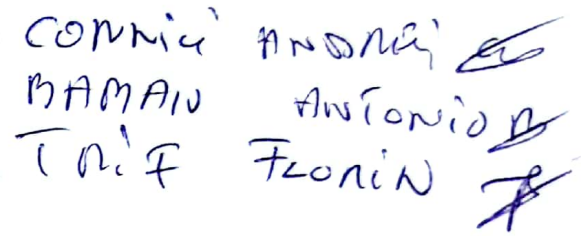 CORNICI ANDREI
BAMAN ANTONIO
TRIF FLORIN